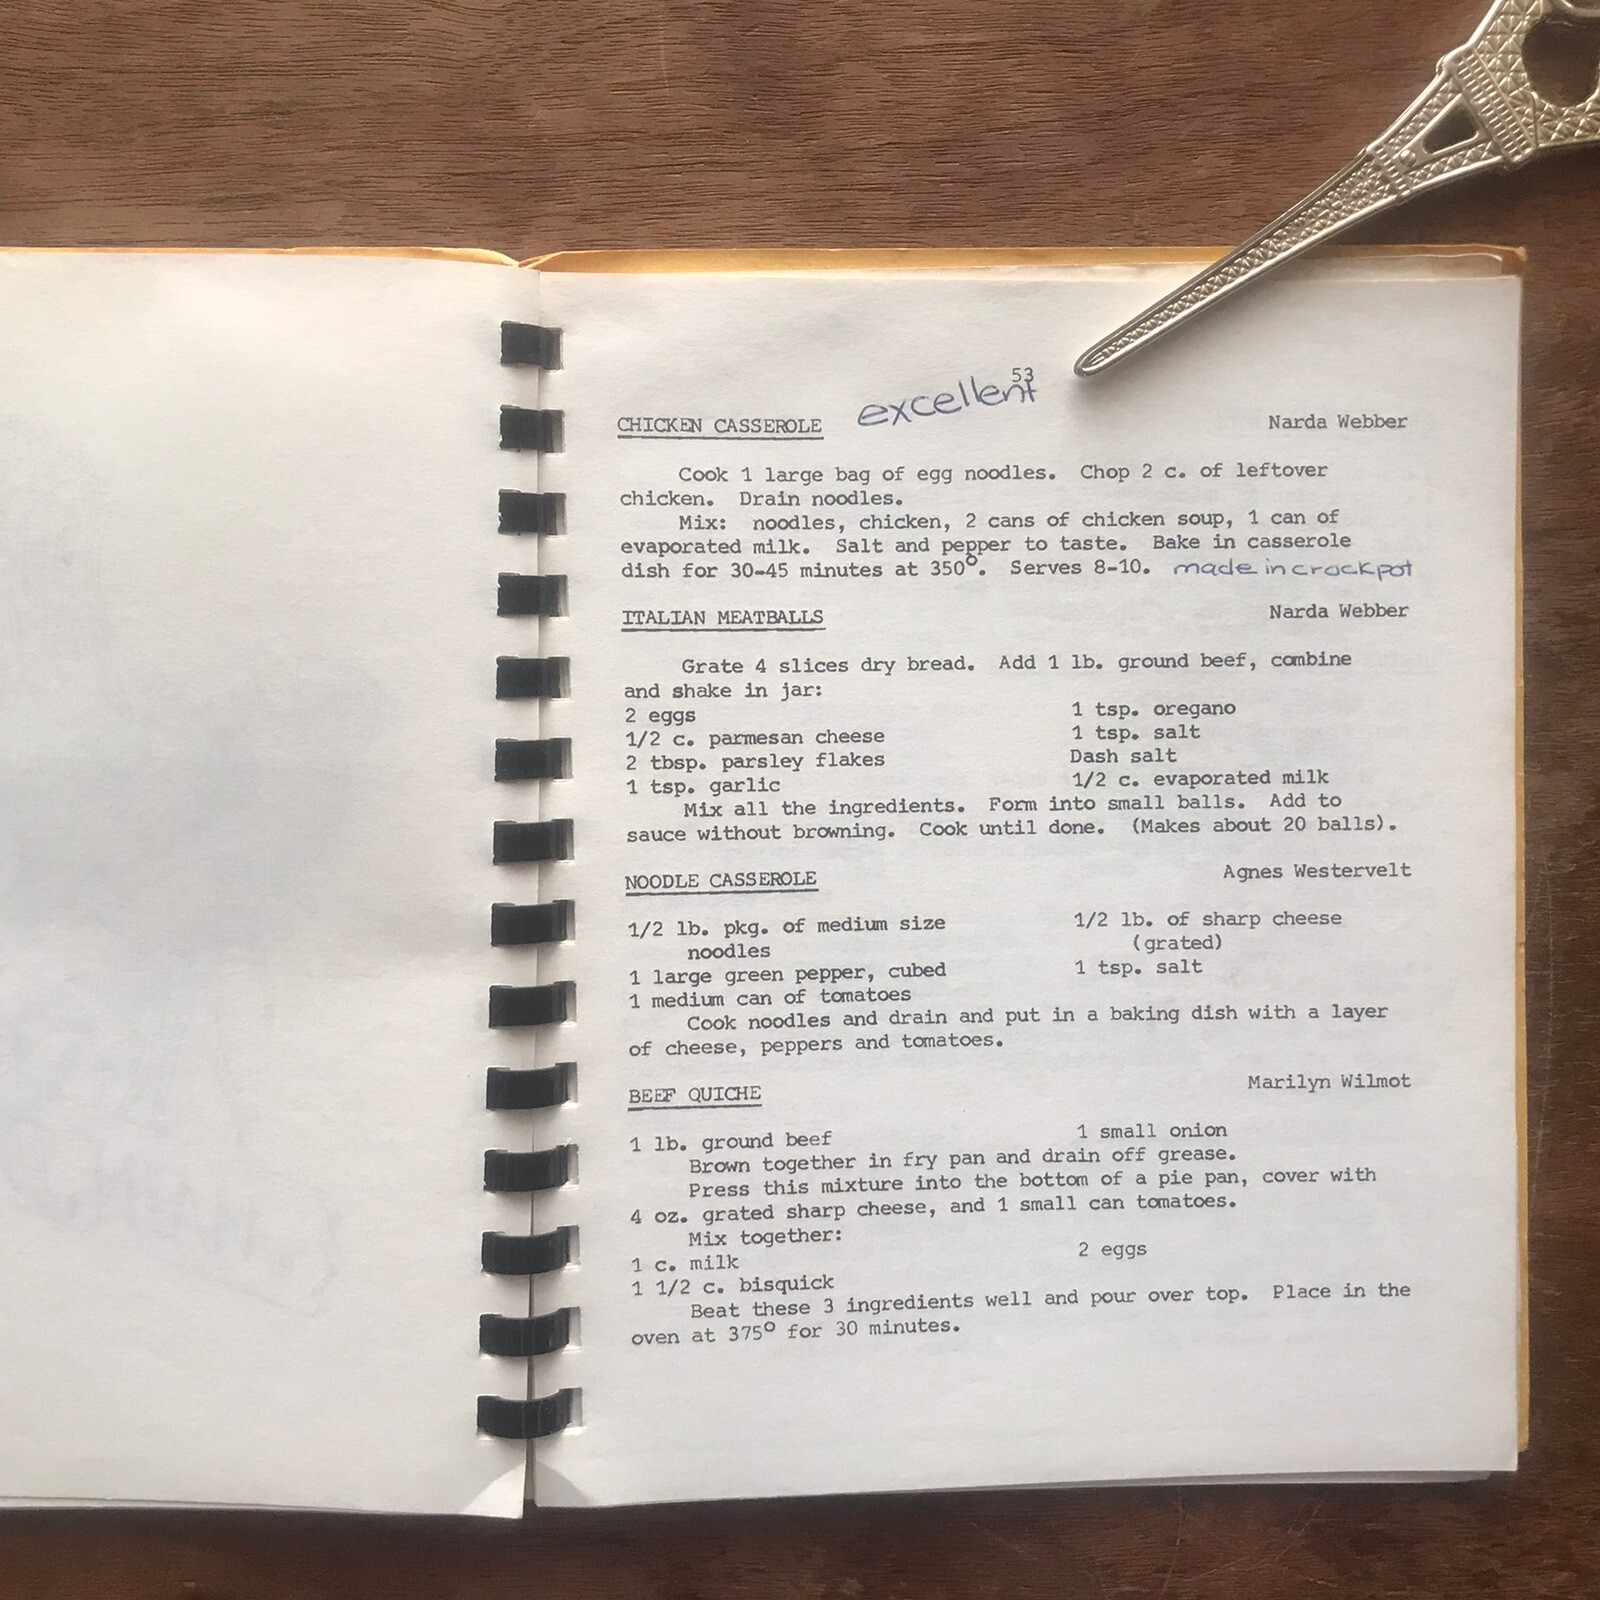 53
CHICKEN CASSEROLE excellent Narda Webber
Cook 1 large bag of egg noodles. Chop 2 c. of leftover
chicken. Drain noodles.
Mix: noodles, chicken, 2 cans of chicken soup, 1 can of
evaporated milk. Salt and pepper to taste. Bake in casserole
dish for 30-45 minutes at 350°. Serves 8-10. made in crockpot
ITALIAN MEATBALLS Narda Webber
Grate 4 slices dry bread. Add 1 lb. ground beef, combine
and shake in jar:
2 eggs 1 tsp. oregano
1/2 c. parmesan cheese 1 tsp. salt
2 tbsp. parsley flakes Dash salt
1 tsp. garlic 1/2 c. evaporated milk
Mix all the ingredients. Form into small balls. Add to
sauce without browning. Cook until done. (Makes about 20 balls).
NOODLE CASSEROLE Agnes Westervelt
1/2 lb. pkg. of medium size 1/2 lb. of sharp cheese
noodles (grated)
1 large green pepper, cubed 1 tsp. salt
1 medium can of tomatoes
Cook noodles and drain and put in a baking dish with a layer
of cheese, peppers and tomatoes.
BEEF QUICHE Marilyn Wilmot
1 lb. ground beef 1 small onion
Brown together in fry pan and drain off grease.
Press this mixture into the bottom of a pie pan, cover with
4 oz. grated sharp cheese, and 1 small can tomatoes.
Mix together:
1 c. milk 2 eggs
1 1/2 c. bisquick
Beat these 3 ingredients well and pour over top. Place in the
oven at 375° for 30 minutes.